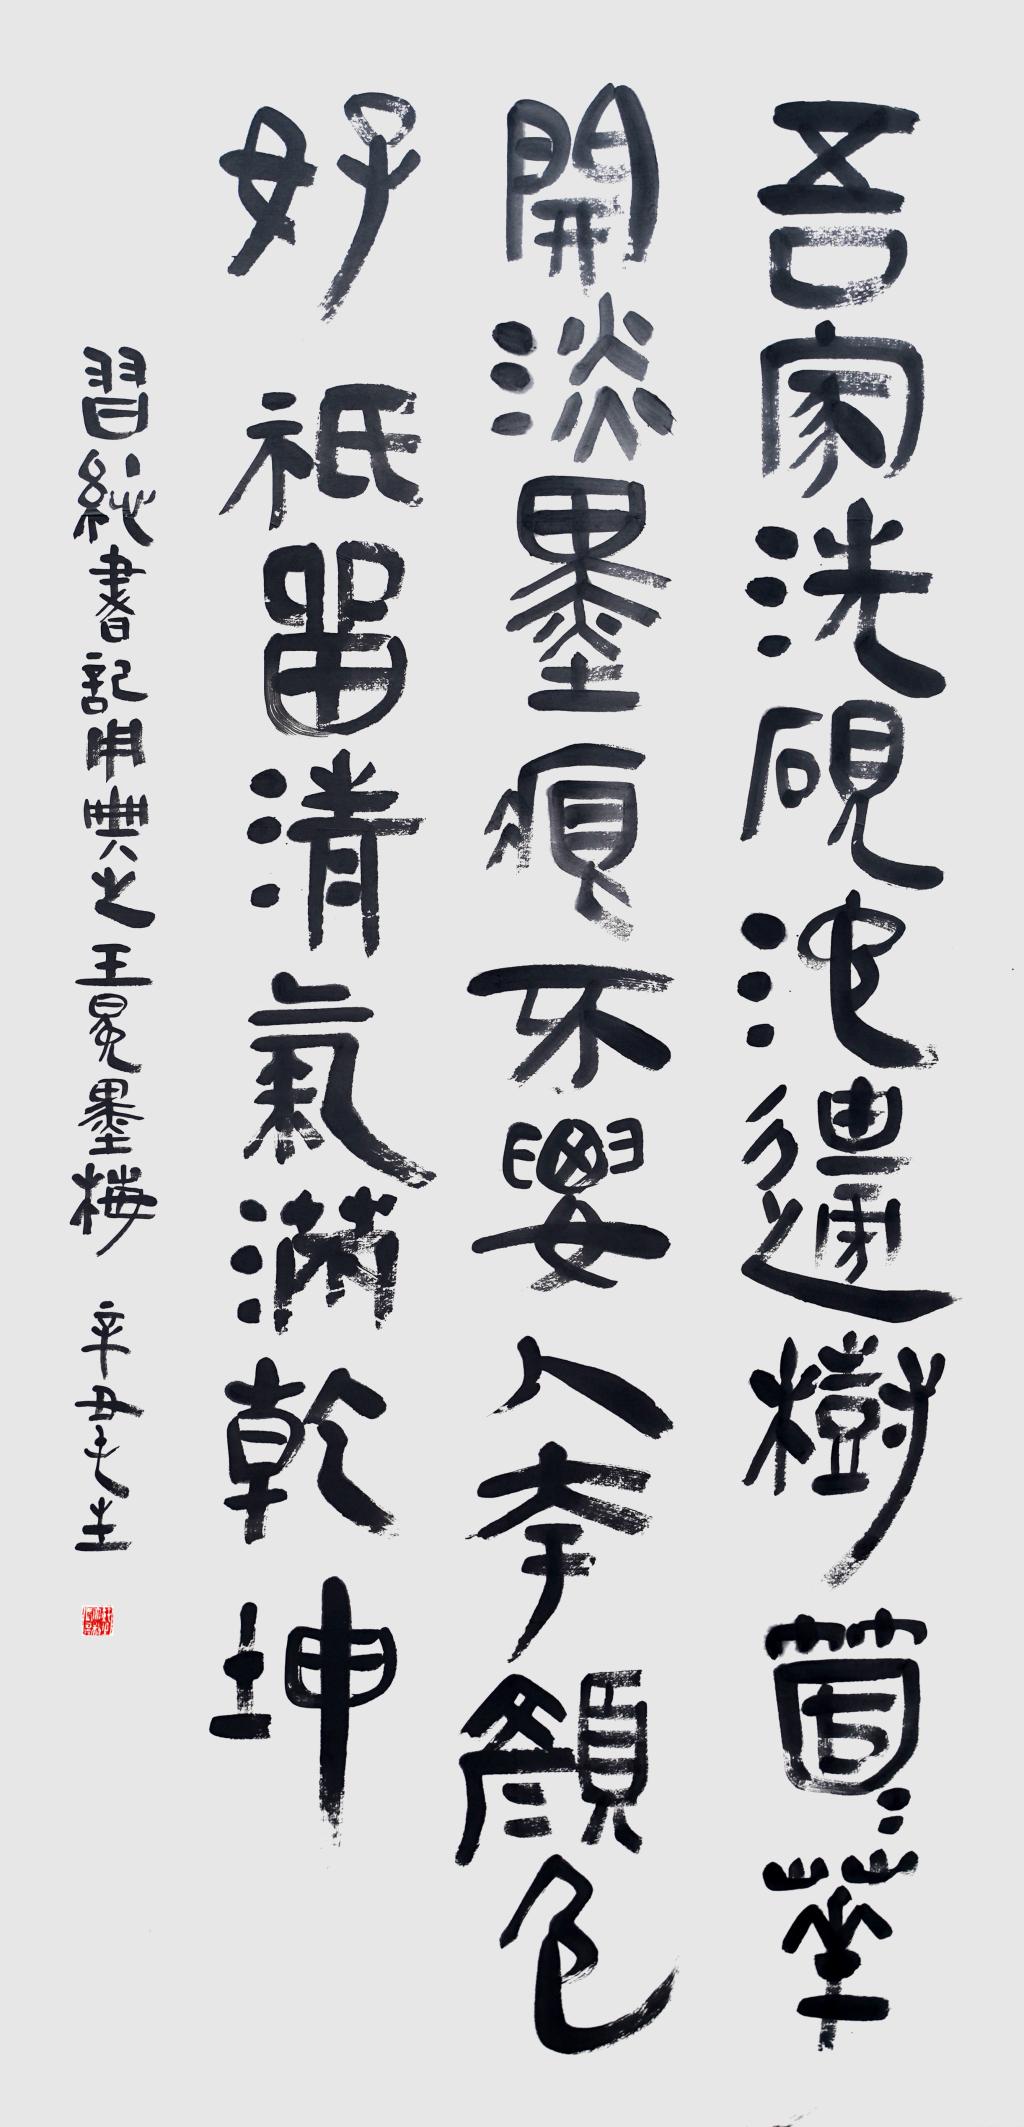 吾家洗硯池邊樹箇〻華
開淡墨痕不要人夸顏色
好祇留清氣滿乾坤
習總書記用典之王冕墨梅 辛丑